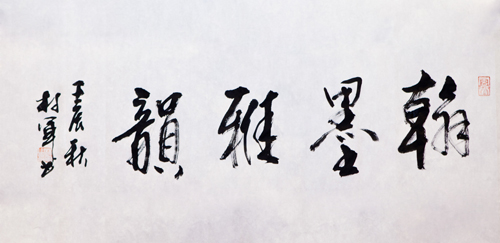 翰墨雅韻
壬辰秋
村軍书